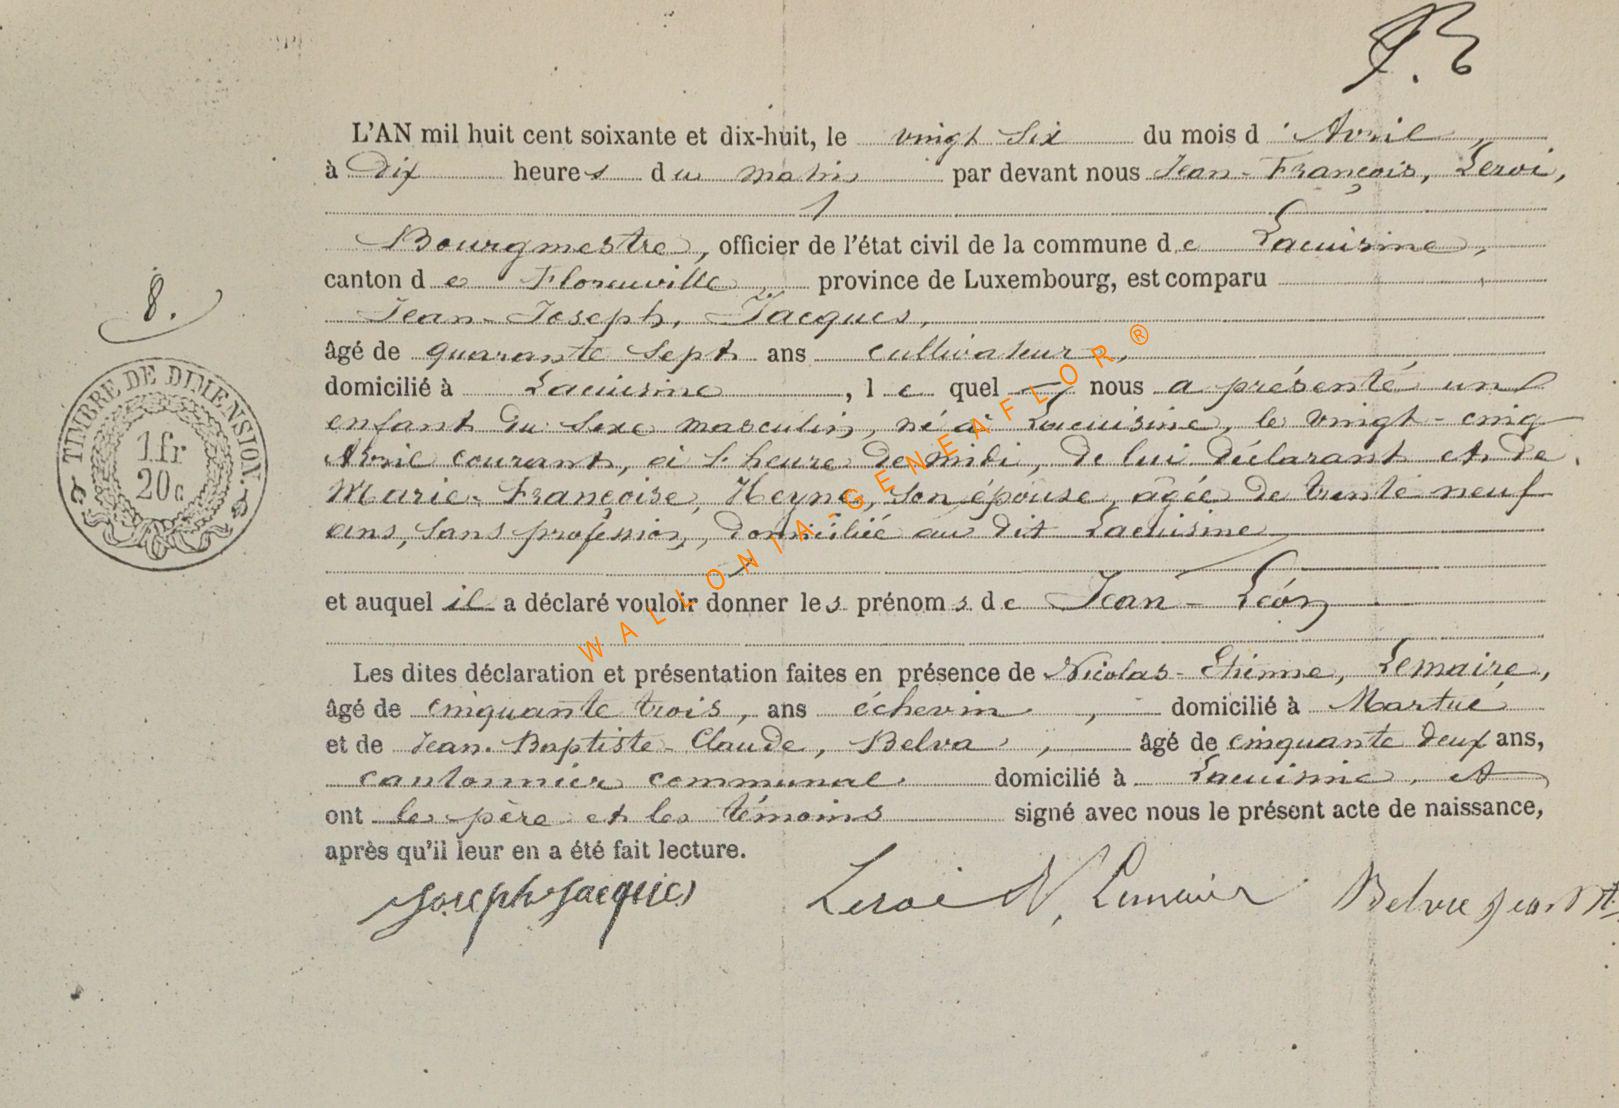 L'AN mil huit cent soixante et dix-huit, le vingt six du mois d'Avril,
à dix heures du matin par devant nous Jean-François, Leroi,
Bourgmestre, officier de l'état civil de la commune de Lacuisine,
canton de Florenville, province de Luxembourg, est comparu
Jean-Joseph, Jacques,
âgé de quarante sept ans cultivateur,
domicilié à Lacuisine, lequel nous a présenté un
enfant du sexe masculin, né à Lacuisine, le vingt-cinq
Avril courant, à l'heure de midi, de lui déclarant et de
Marie-Françoise, Heyne, son épouse, âgée de trente neuf
ans, sans profession, domiciliée au dit Lacuisine
et auquel il a déclaré vouloir donner les prénoms de Jean-Léon
Les dites déclaration et présentation faites en présence de Nicolas-Etienne, Lemaire,
âgé de cinquante trois, ans échevin, domicilié à Martué
et de Jean-Baptiste-Claude, Belva, âgé de cinquante deux ans,
cantonnier communal domicilié à Lacuisine, et
ont le père et les témoins signé avec nous le présent acte de naissance,
après qu'il leur en a été fait lecture.
Joseph Jacques Leroi N. Lemaire Belva Jean Bte
8.
TIMBRE DE DIMENSION.
1 fr
20 c
WALLONIA-GENEAFLOR®